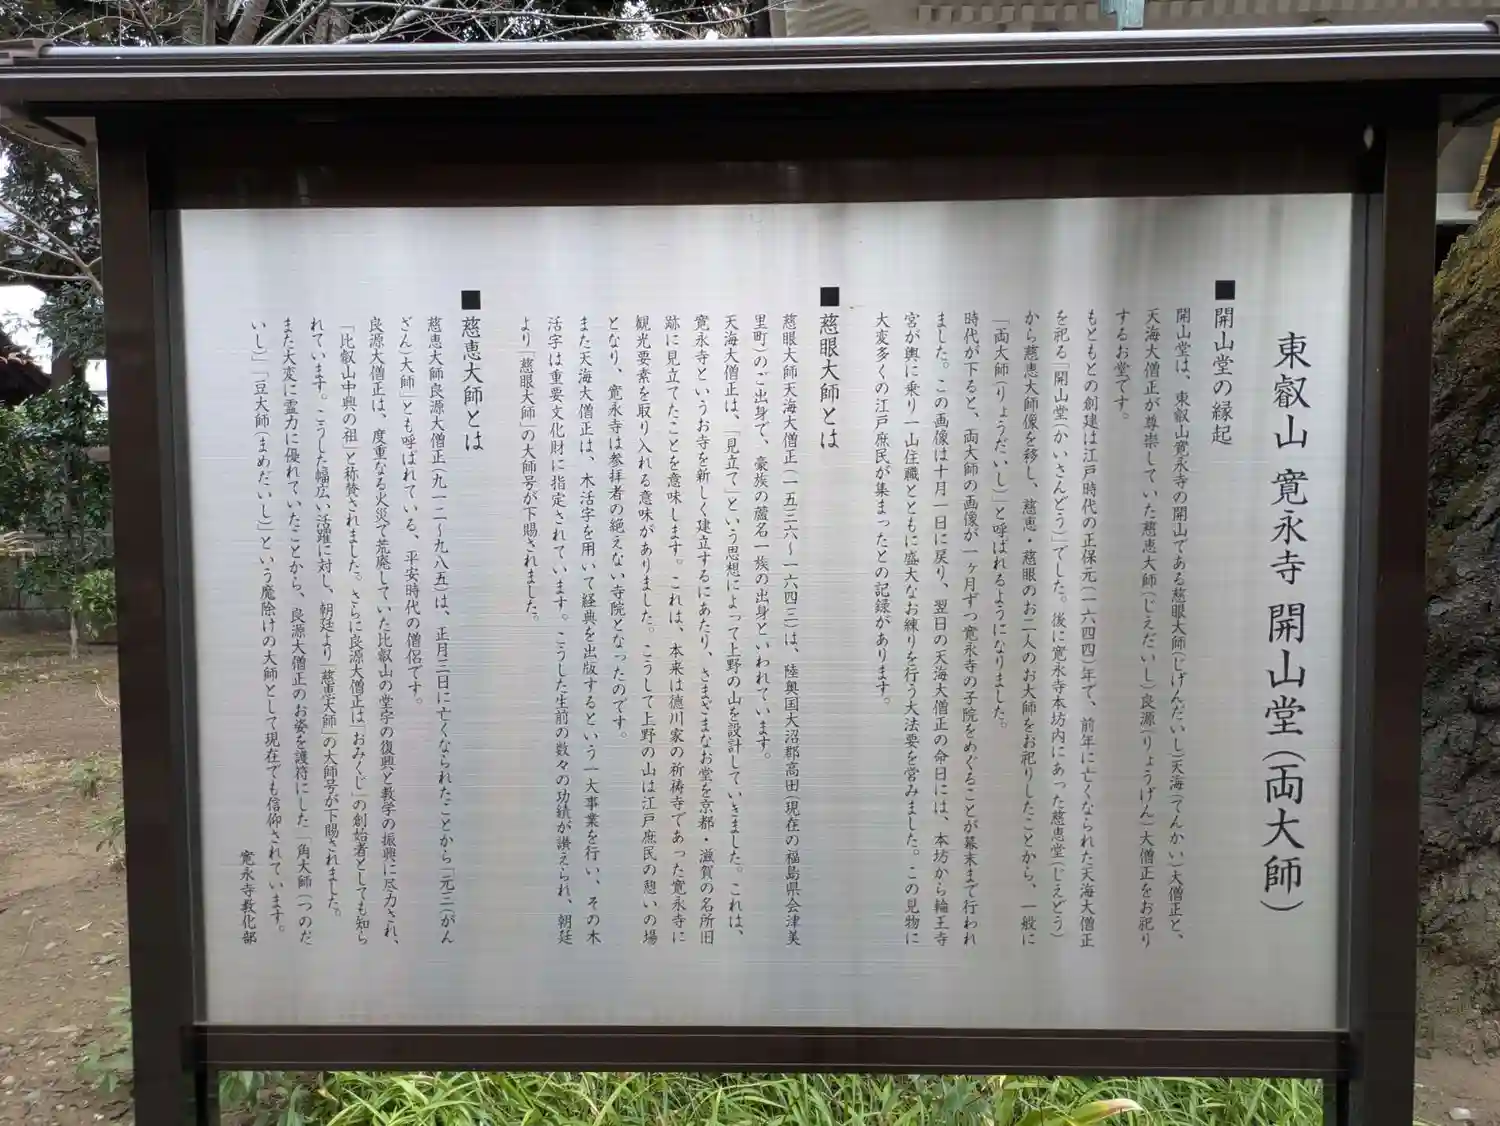 東叡山 寛永寺 開山堂（両大師）
■開山堂の縁起
開山堂は、東叡山寛永寺の開山である慈眼大師（じげんだいし）天海（てんかい）大僧正と、
天海大僧正が尊崇していた慈恵大師（じえだいし）良源（りょうげん）大僧正をお祀り
するお堂です。
もともとの創建は江戸時代の正保元（一六四四）年で、前年に亡くなられた天海大僧正
を祀る「開山堂（かいさんどう）」でした。後に寛永寺本坊内にあった慈恵堂（じえどう）
から慈恵大師像を移し、慈恵・慈眼のお二人のお大師をお祀りしたことから、一般に
「両大師（りょうだいし）」と呼ばれるようになりました。
時代が下ると、両大師の画像が一ヶ月ずつ寛永寺の子院をめぐることが幕末まで行われ
ました。この画像は十月一日に戻り、翌日の天海大僧正の命日には、本坊から輪王寺
宮が輿に乗り一山住職とともに盛大なお練りを行う大法要を営みました。この見物に
大変多くの江戸庶民が集まったとの記録があります。
■慈眼大師とは
慈眼大師天海大僧正（一五三六〜一六四三）は、陸奥国大沼郡高田（現在の福島県会津美
里町）のご出身で、豪族の蘆名一族の出身といわれています。
天海大僧正は、「見立て」という思想によって上野の山を設計していきました。これは、
寛永寺というお寺を新しく建立するにあたり、さまざまなお堂を京都・滋賀の名所旧
跡に見立てたことを意味します。これは、本来は徳川家の祈祷寺であった寛永寺に
観光要素を取り入れる意味がありました。こうして上野の山は江戸庶民の憩いの場
となり、寛永寺は参拝者の絶えない寺院となったのです。
また天海大僧正は、木活字を用いて経典を出版するという一大事業を行い、その木
活字は重要文化財に指定されています。こうした生前の数々の功績が讃えられ、朝廷
より「慈眼大師」の大師号が下賜されました。
■慈恵大師とは
慈恵大師良源大僧正（九一二〜九八五）は、正月三日に亡くなられたことから「元三（がん
ざん）大師」とも呼ばれている、平安時代の僧侶です。
良源大僧正は、度重なる火災で荒廃していた比叡山の堂宇の復興と教学の振興に尽力され、
「比叡山中興の祖」と称賛されました。さらに良源大僧正は「おみくじ」の創始者としても知ら
れています。こうした幅広い活躍に対し、朝廷より「慈恵大師」の大師号が下賜されました。
また大変に霊力に優れていたことから、良源大僧正のお姿を護符にした「角大師（つのだ
いし）」「豆大師（まめだいし）」という魔除けの大師として現在でも信仰されています。
寛永寺教化部